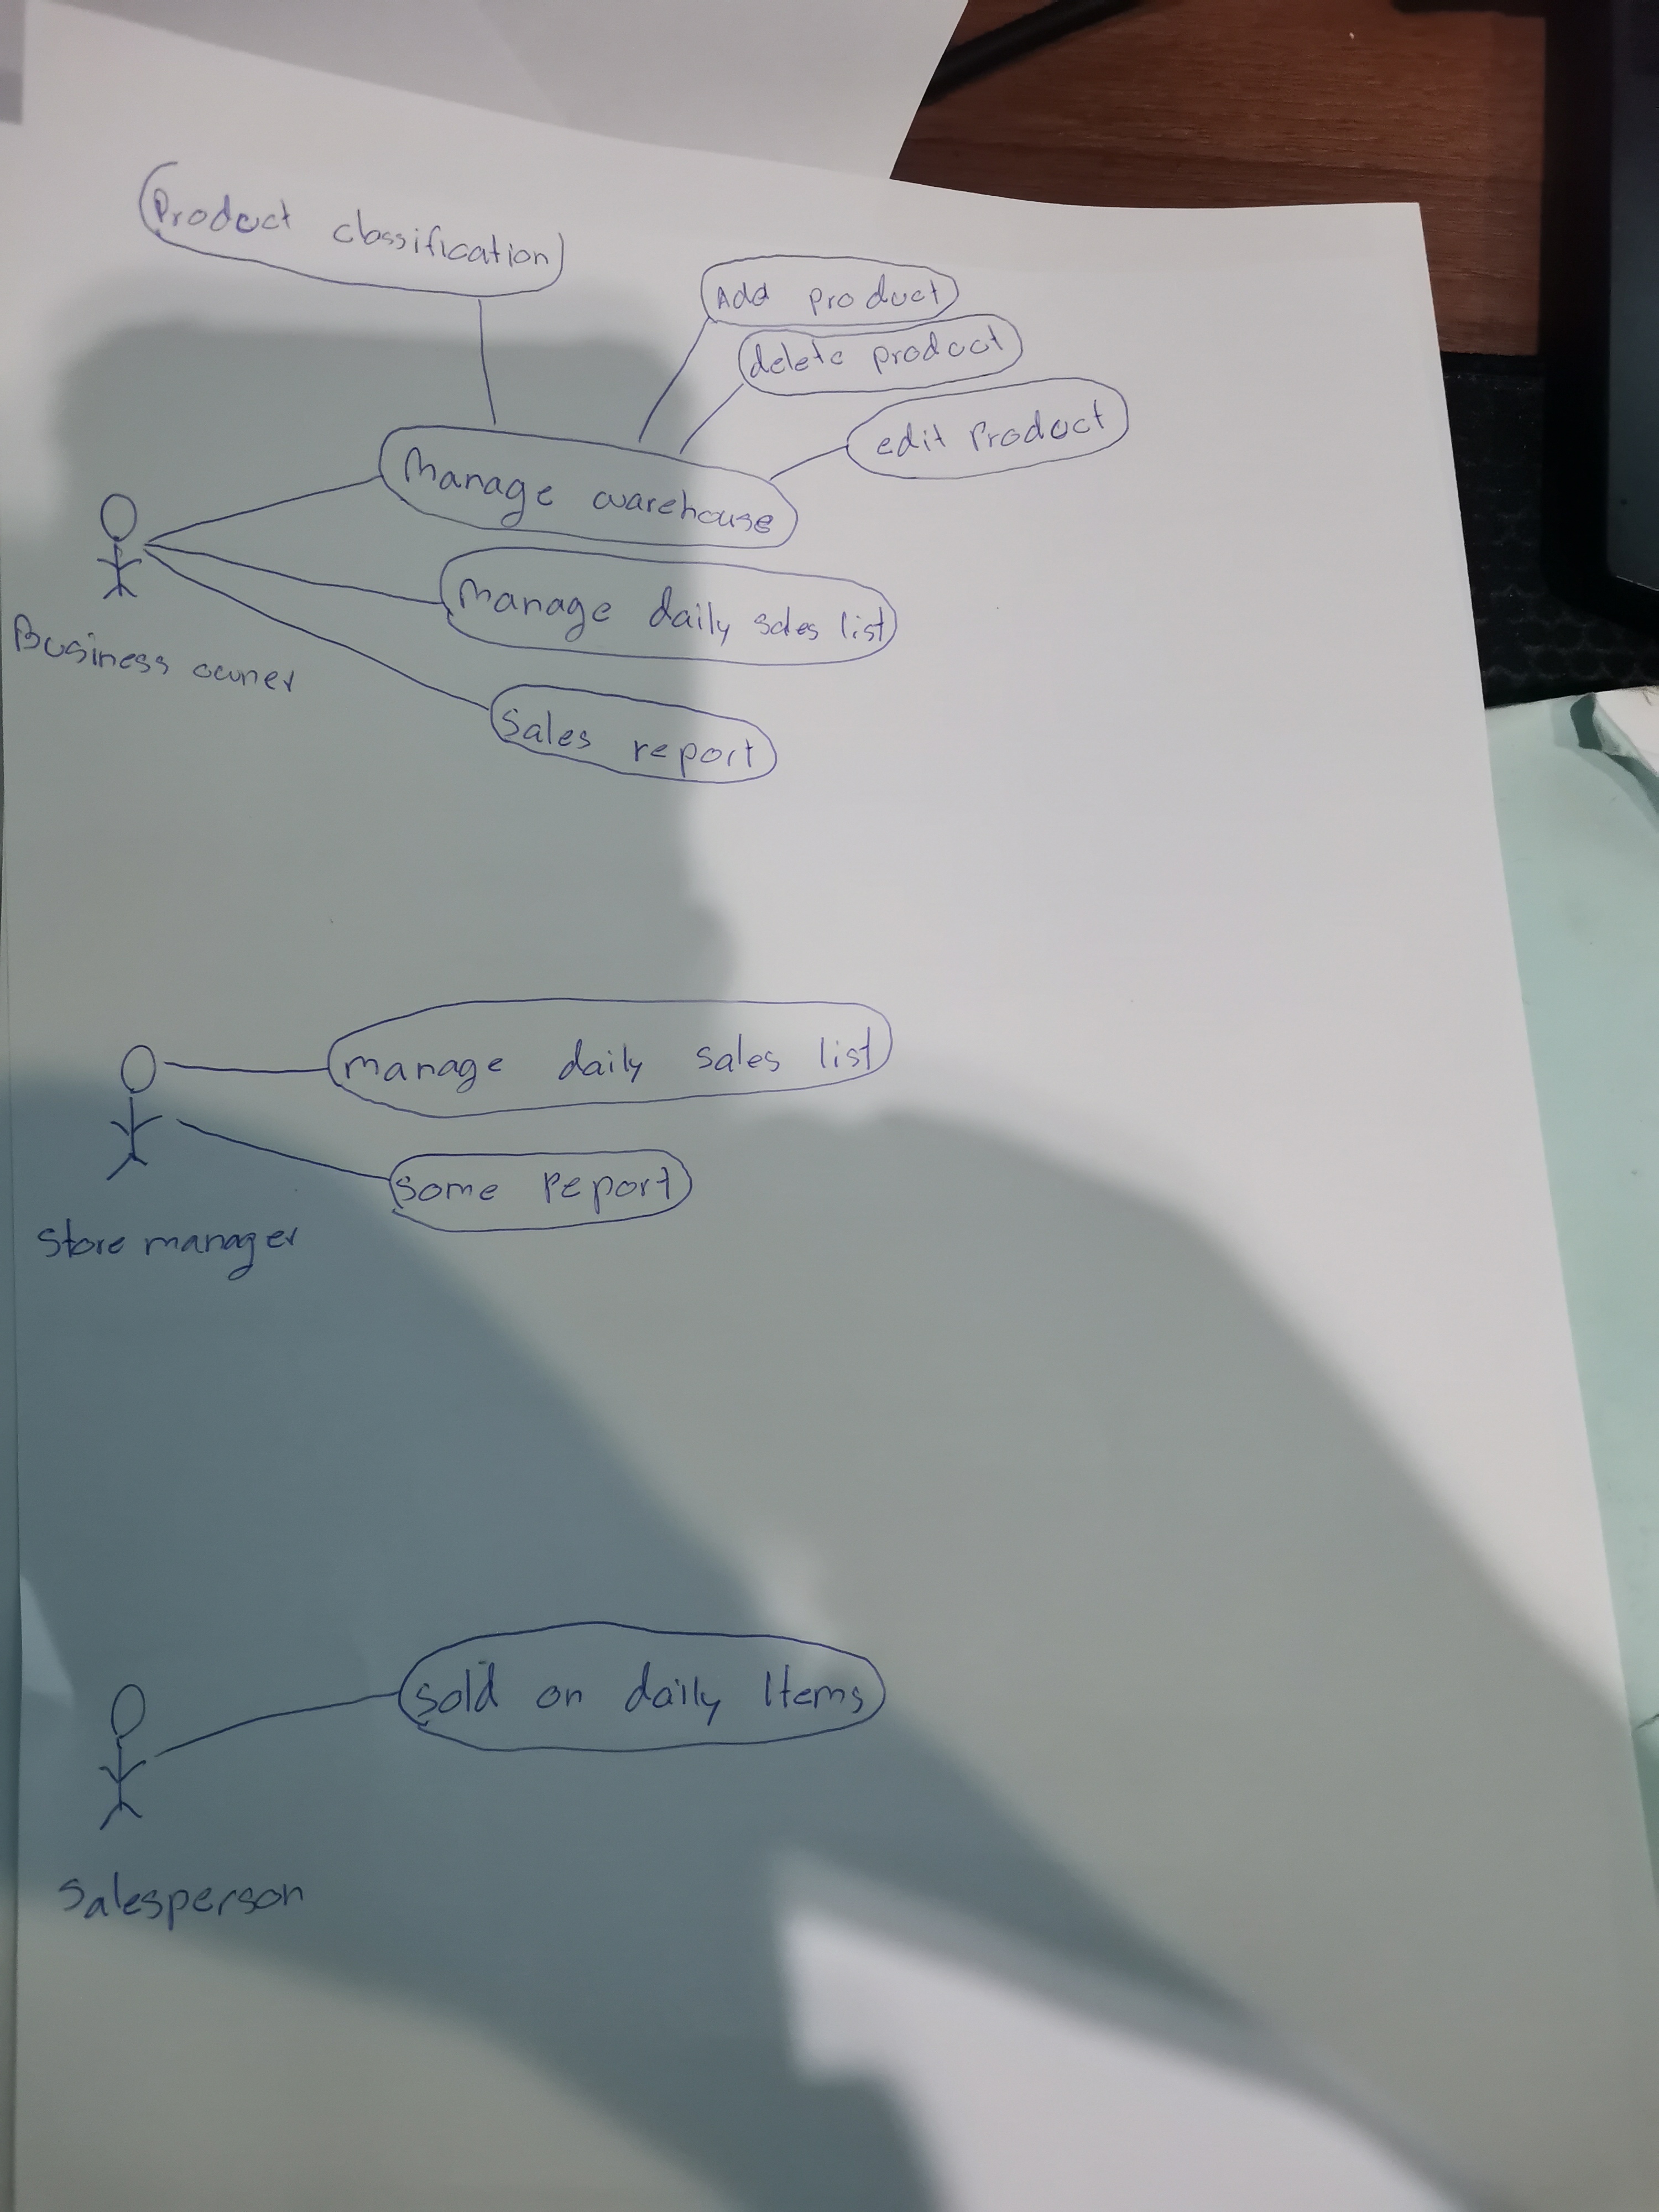 Product classification
Add product
delete product
edit Product
Manage warehouse
Manage daily sales list
Business owner
Sales report
manage daily sales list
some report
Store manager
sold on daily Items
Salesperson